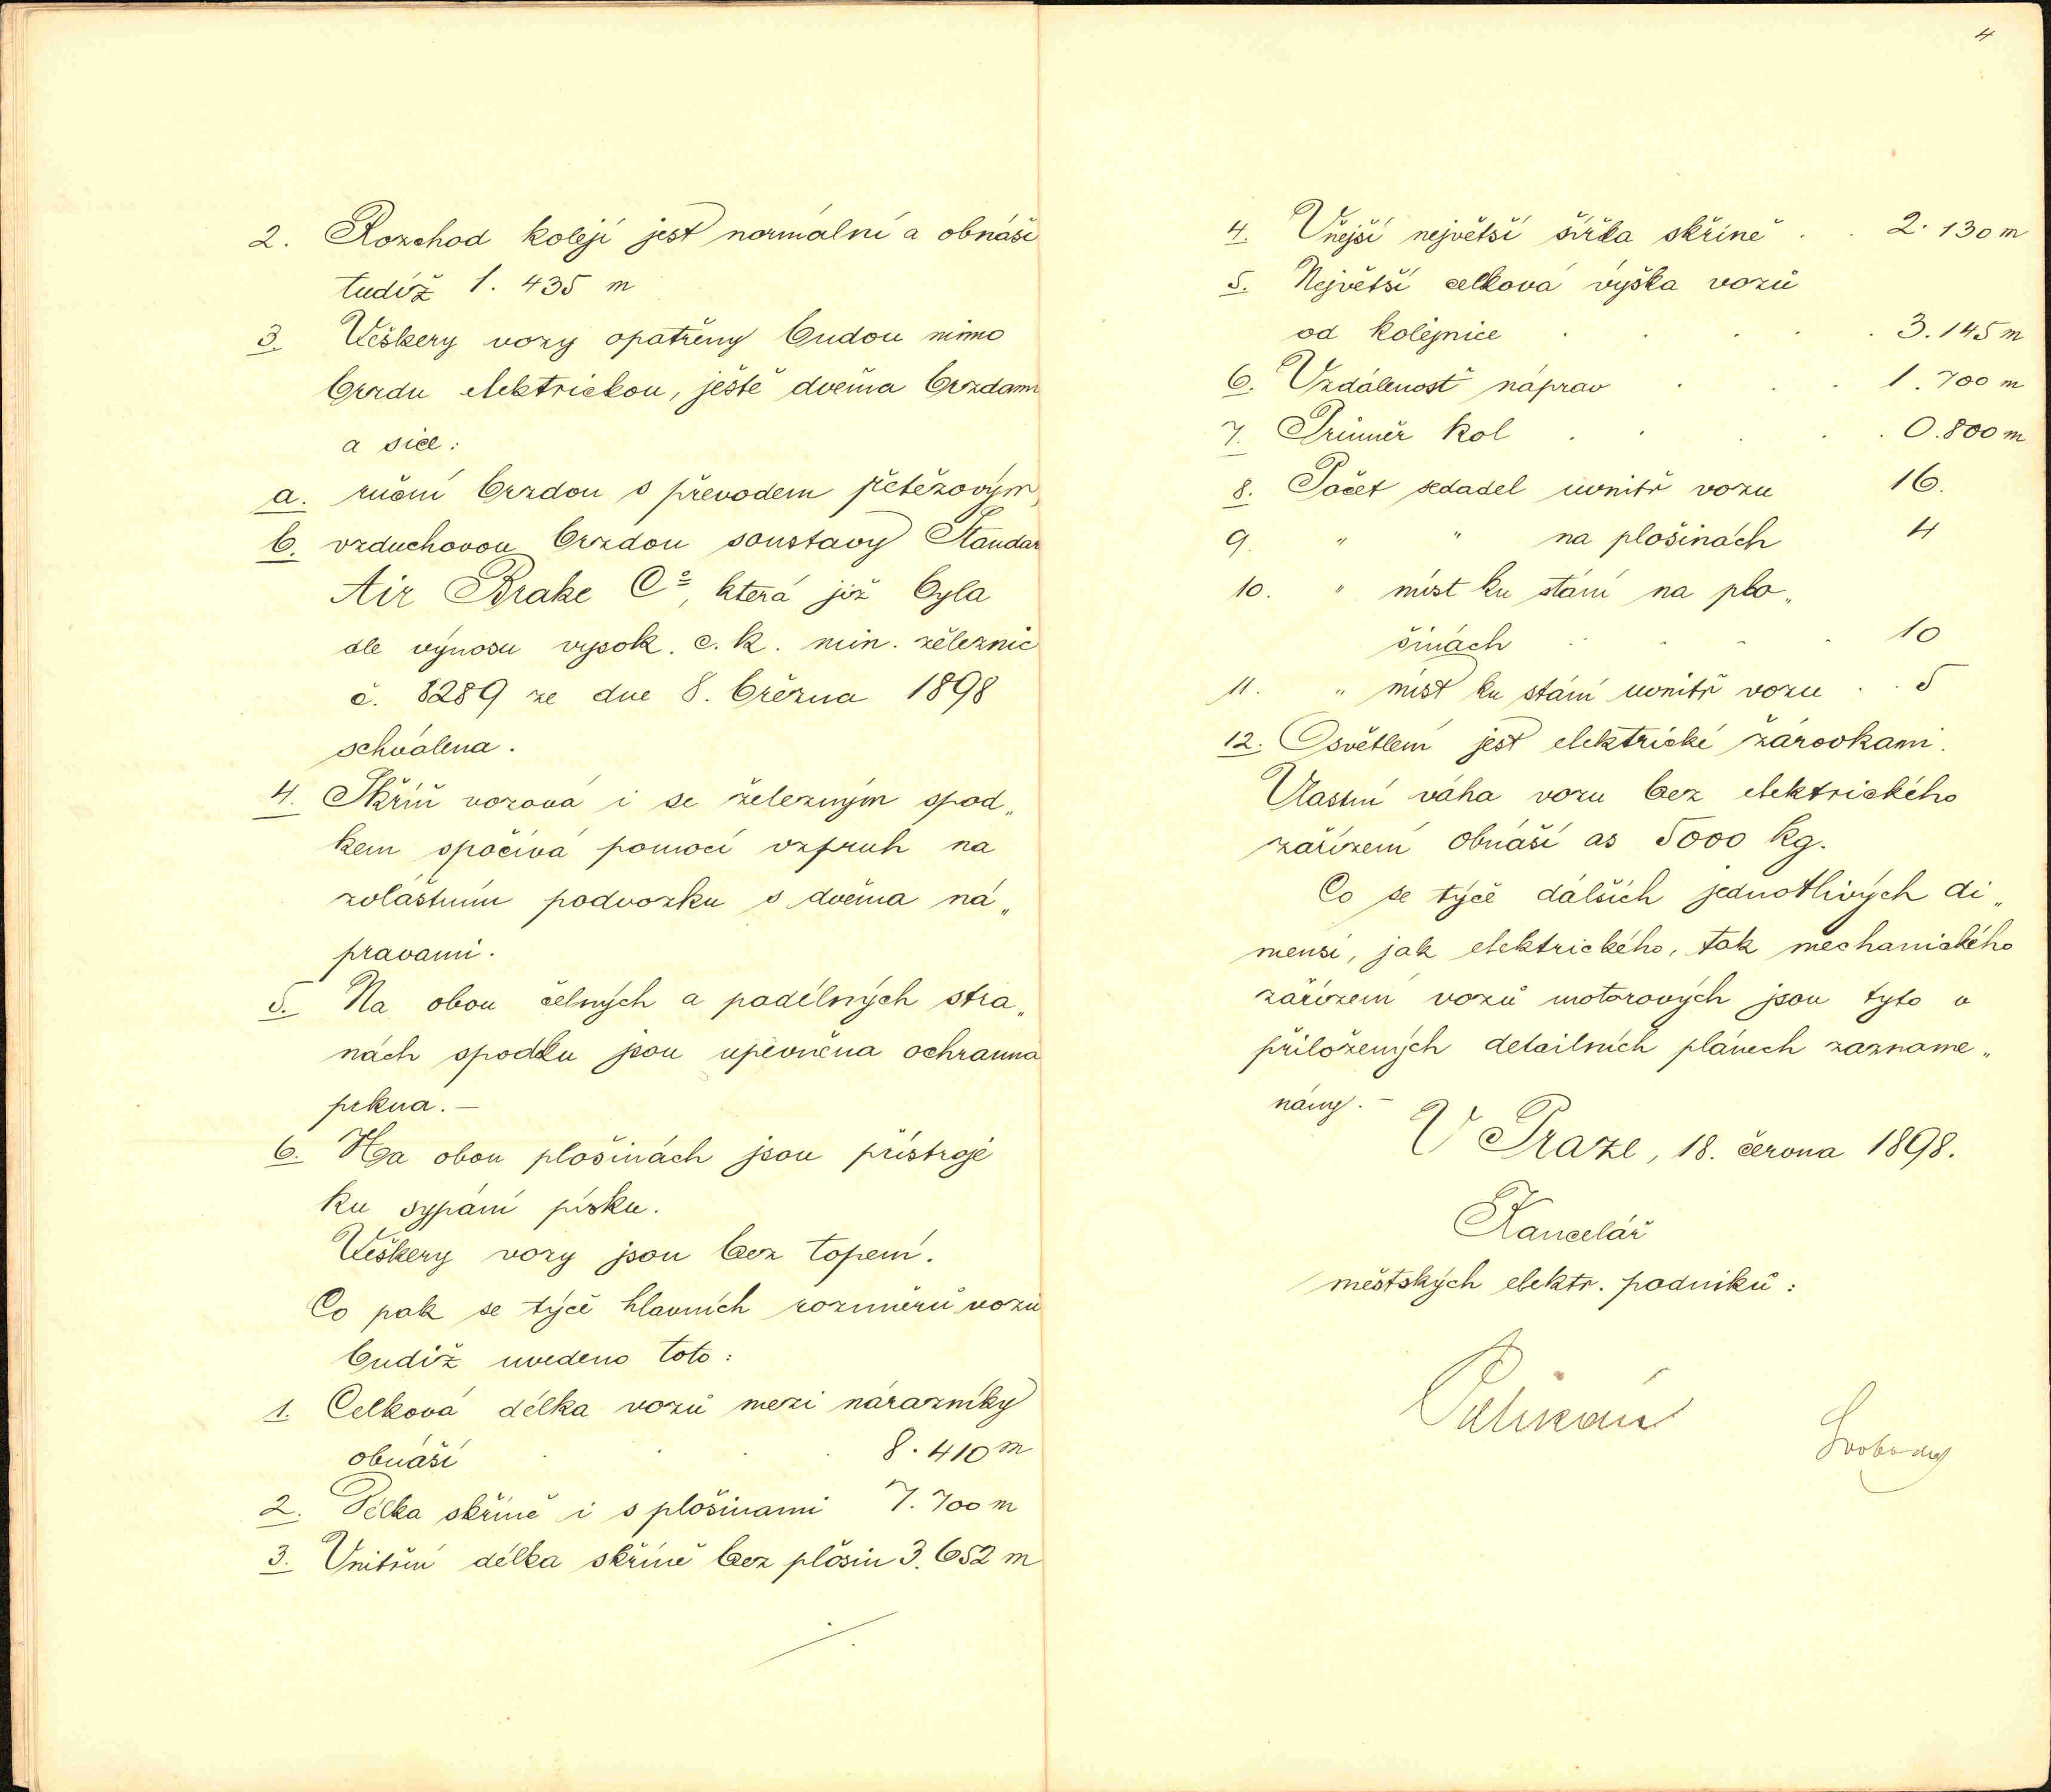 2. Rozchod kolejí jest normální a obnáší
tudíž 1.435 m
3. Veškery vozy opatřeny budou mimo
brzdu elektrickou, ještě dvěma brzdami
a sice:
a. ruční brzdou s převodem řetězovým,
b. vzduchovou brzdou soustavy Standar
Air Brake Co, která již byla
dle výnosu vysok. c. k. min. železnic
č. 8289 ze dne 8. března 1898
schválena.
4. Skříň vozová i se železným spod„
kem spočívá pomocí vzpruh na
zvláštním podvozku s dvěma ná„
pravami.
5. Na obou čelných a podélných stra„
nách spodku jsou upevněna ochranna
prkna.—
6. Na obou plošinách jsou přístroje
ku sypání písku.
Veškery vozy jsou bez topení.
Co pak se týče hlavních rozměrů vozů
budiž uvedeno toto:
1. Celková délka vozů mezi nárazníky
obnáší . . . 8.410 m
2. Délka skříně i s plošinami 7.700 m
3. Vnitřní délka skříně bez plošin 3.652 m
4
4. Vnější největší šířka skříně . . 2.130 m
5. Největší celková výška vozů
od kolejnice . . . . . 3.145 m
6. Vzdálenost náprav . . . 1.700 m
7. Průměr kol . . . . . 0.800 m
8. Počet sedadel uvnitř vozu 16.
9. " " na plošinách 4
10. " míst ku stání na plo„
šinách . . . . 10
11. " míst ku stání uvnitř vozu . . 5
12. Osvětlení jest elektrické žárovkami.
Vlastní váha vozu bez elektrického
zařízení obnáší as 5000 kg.
Co se týče dalších jednotlivých di„
mensí, jak elektrického, tak mechanického
zařízení vozů motorových jsou tyto v
přiložených detailních plánech zazname„
nány.—
V Praze, 18. června 1898.
Kancelář
městských elektr. podniků:
Pelikán
Svoboda